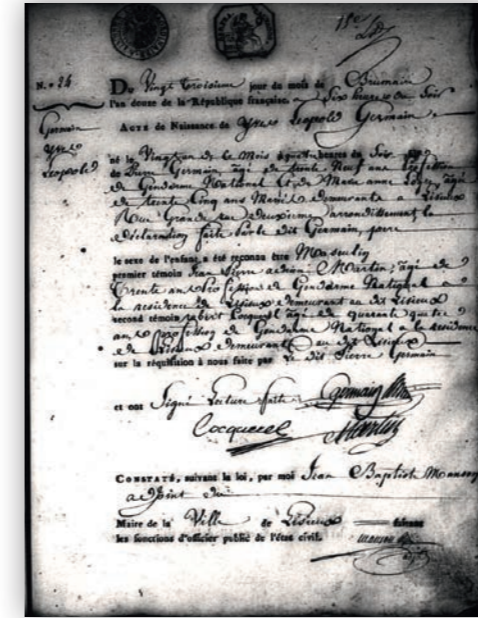 N.° 24
Du Vingt Troisieme jour du mois de Brumaire
l'an douze de la République française. a Six heures du Soir
Acte de Naissance de Yves Leopold Germain
Germain
Yves
Leopold
né le Vingt un de ce Mois a quatre heures du Soir
de Pierre Germain, agé de trente Neuf ans Profession
de Gendarme National Et de Marie anne, agée
de trente Cinq ans Mariés demeurants a Lisieux
Rue Grande rue deuxieme arrondissement la
declaration faite par le dit Germain, pere
le sexe de l'enfant a été reconnu être Masculin
premier témoin Jean Pierre Martin, agé de
Trente ans Profession de Gendarme National a
la residence de Lisieux demeurant au dit Lisieux
second témoin agé de quarante quatre
ans profession de Gendarme National a la residence
de Lisieux demeurant au dit Lisieux
sur la réquisition à nous faite par le dit Pierre Germain
et ont Signé Lecture faite Germain
Cocquerel Martin
Constaté, suivant la loi, par moi Jean Baptiste
adjoint du
Maire de la Ville de Lisieux faisant
les fonctions d'officier public de l'état civil.